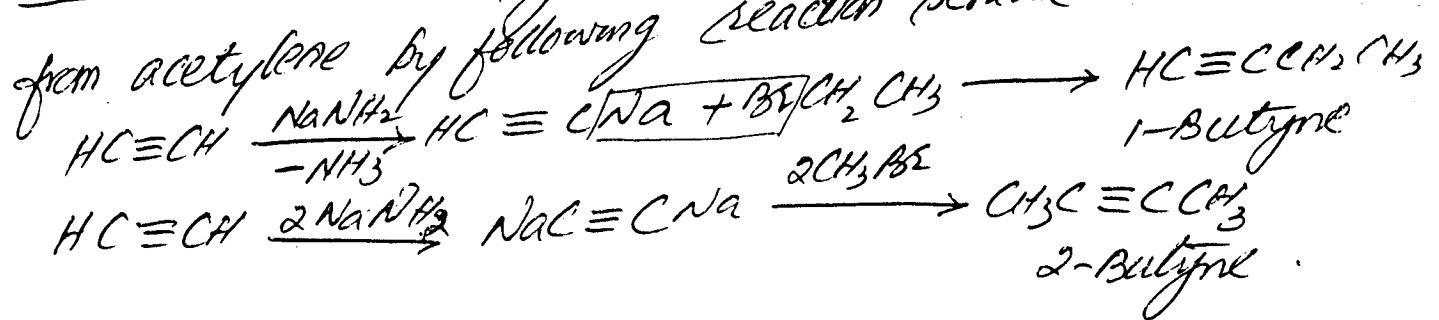 from acetylene by following reaction
HC≡CH —NaNH₂/−NH₃→ HC≡CNa + BrCH₂CH₃ ⟶ HC≡CCH₂CH₃
1-Butyne
HC≡CH —2NaNH₂→ NaC≡CNa —2CH₃Br→ CH₃C≡CCH₃
2-Butyne .